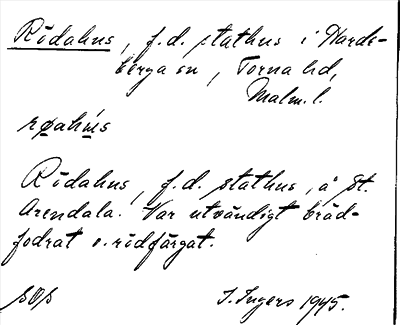 Rödahus, f.d. stathus i Harde-
berga sn, Torna hd,
Malm. l.
røahús
Rödahus, f.d. stathus, å St.
Arendala. Var utvändigt bräd-
fodrat o. rödfärgat.
SOS I. Ingers 1945.